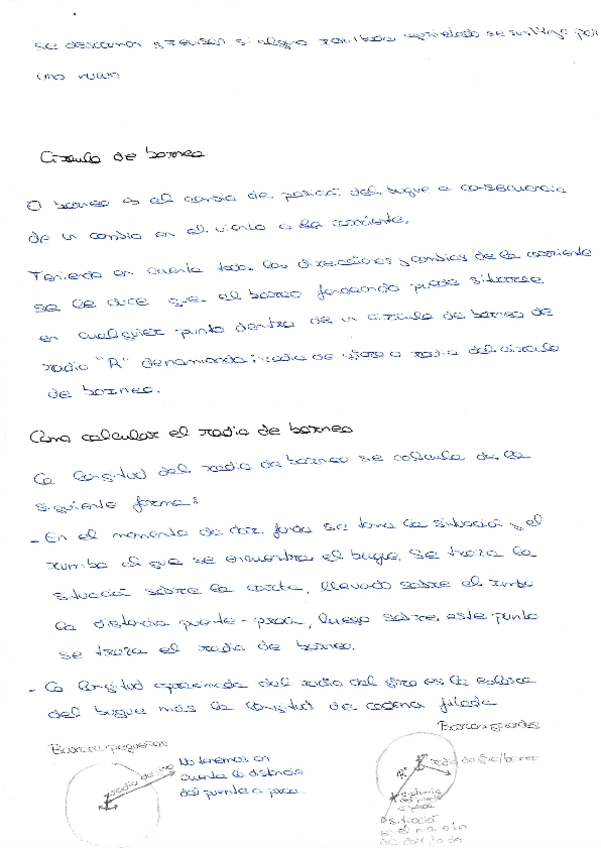 se descansa y revisar si algun
Circulo de borneo
O borneo es el cambio de posicion del buque a consecuencia
de un cambio en el viento o la corriente.
Teniendo en cuenta todas las direcciones y cambios de la corriente
se le dice que el barco fondeando puede situarse
en cualquier punto dentro de un circulo de borneo de
radio "R" denominado: radio de giro o radio del circulo
de borneo.
Como calcular el radio de borneo
La longitud del radio de borneo se calcula de la
siguiente forma:
- En el momento de dar fondo se toma la situació y el
rumbo al que se encuentra el buque, se traza la
situació sobre la carta, llevado sobre el rumbo
la distancia puente-proa, luego sobre este punto
se traza el radio de borneo.
- La longitud aproximada del radio del giro es la eslora
del buque más la longitud de cadena filada
Barcos pequeños
Barcos grandes
radio de giro
No tenemos en
cuenta la distancia
del puente a proa
"R"
radio de giro/borneo
distancia
del puente
a proa
situació
en el momento
de dar fondo